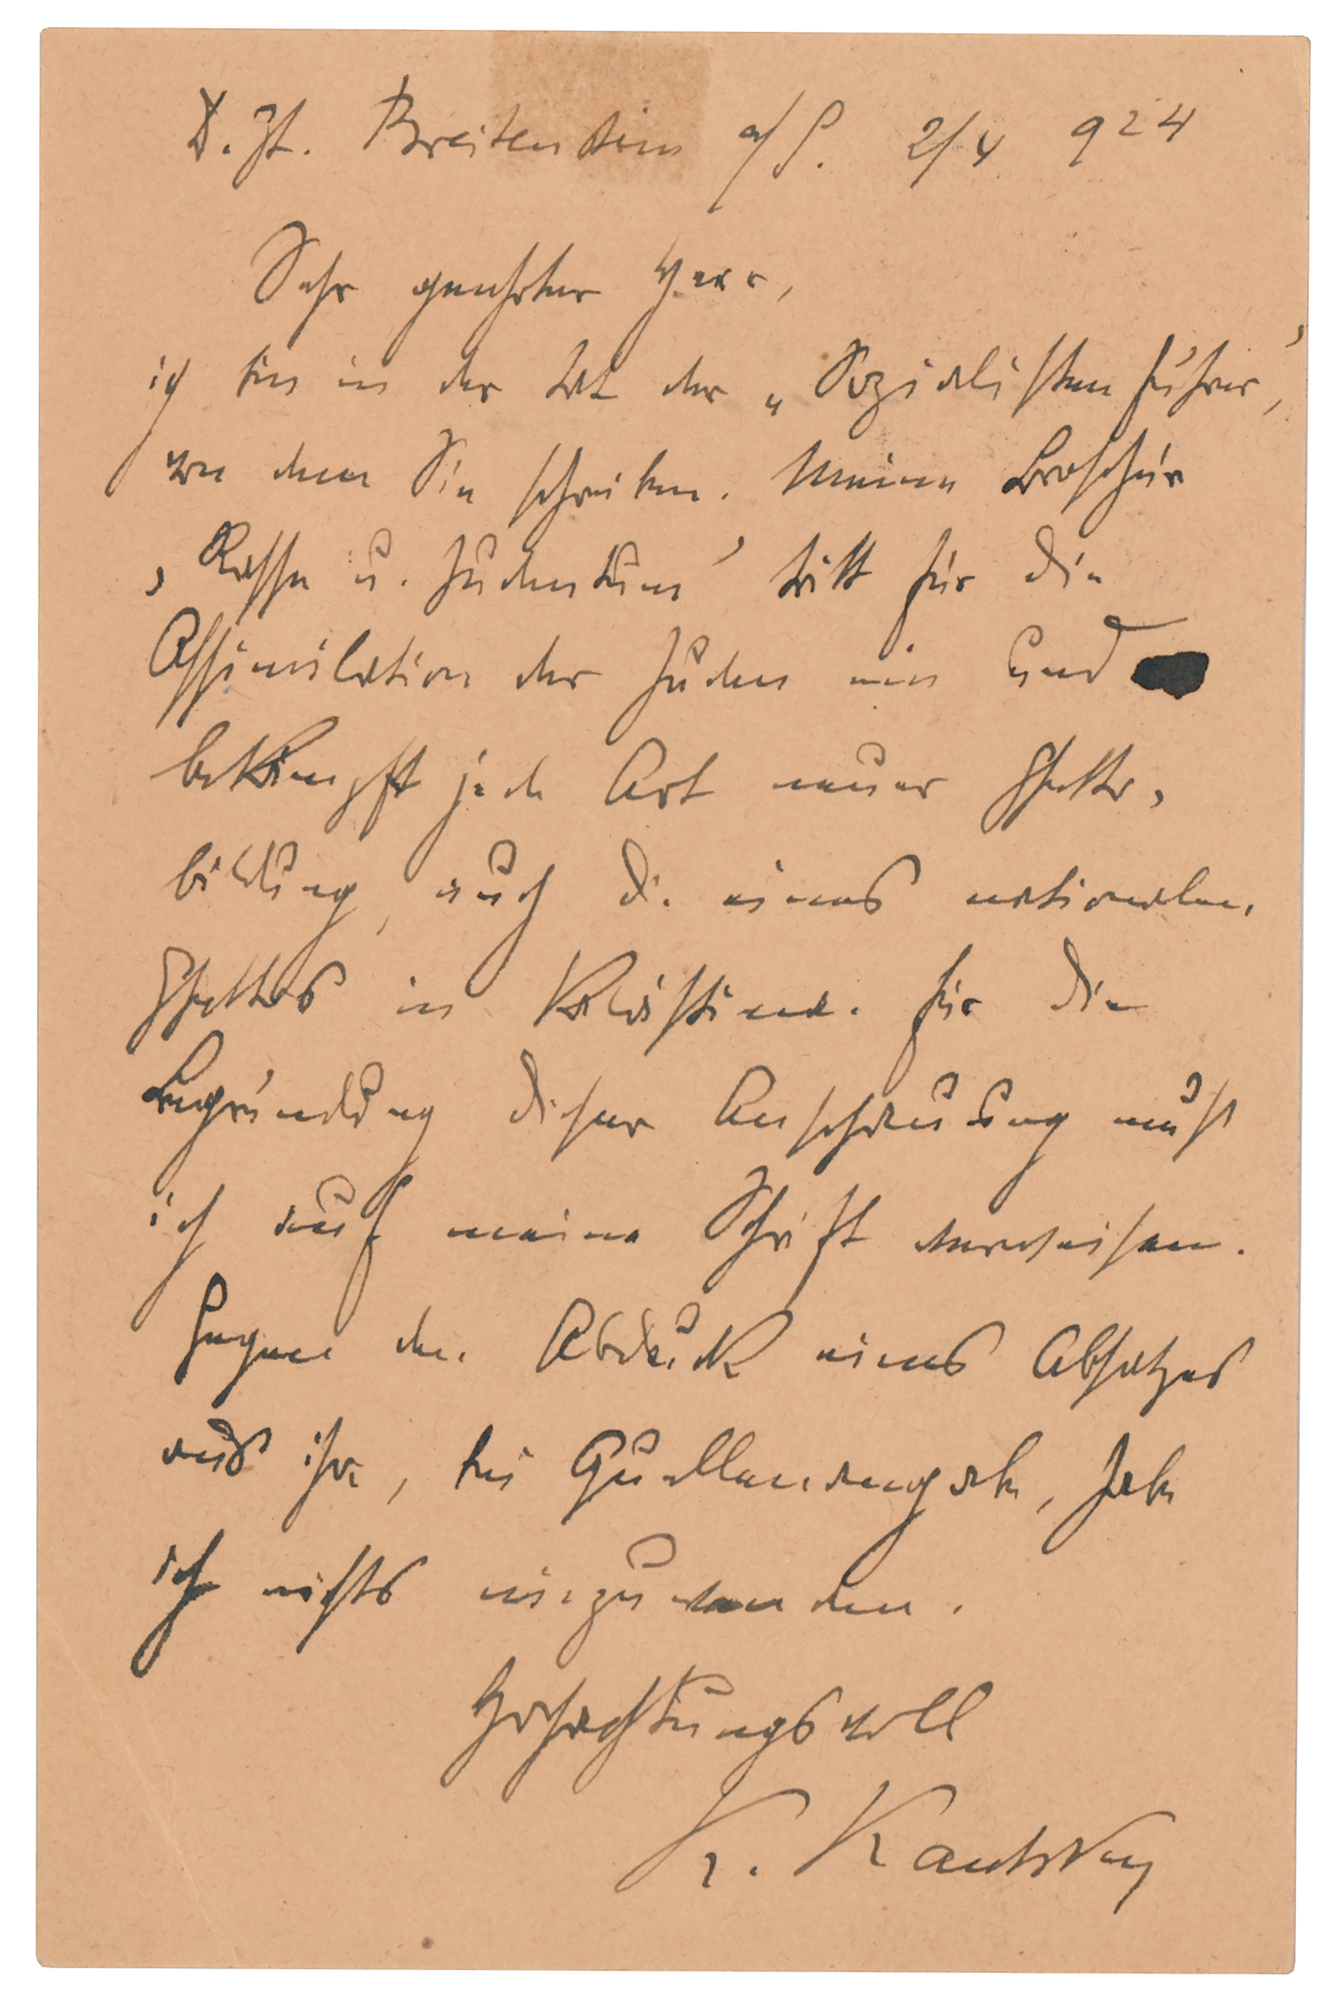 D. Zt. Breitenstein a/S. 2/4 924
Sehr geehrter Herr,
ich bin in der Tat der „Sozialistenführer“,
von dem Sie schreiben. Meine Broschür
„Rasse u. Judentum“ tritt für die
Assimilation der Juden ein und
bekämpft jede Art neuer Ghetto-
bildung, auch die eines nationalen
Ghettos in Palästina. Für die
Begründung dieser Anschauung muß
ich auf meine Schrift verweisen.
Gegen den Abdruck eines Absatzes
aus ihr, bei Quellenangabe, habe
ich nichts einzuwenden.
Hochachtungsvoll
K. Kautsky